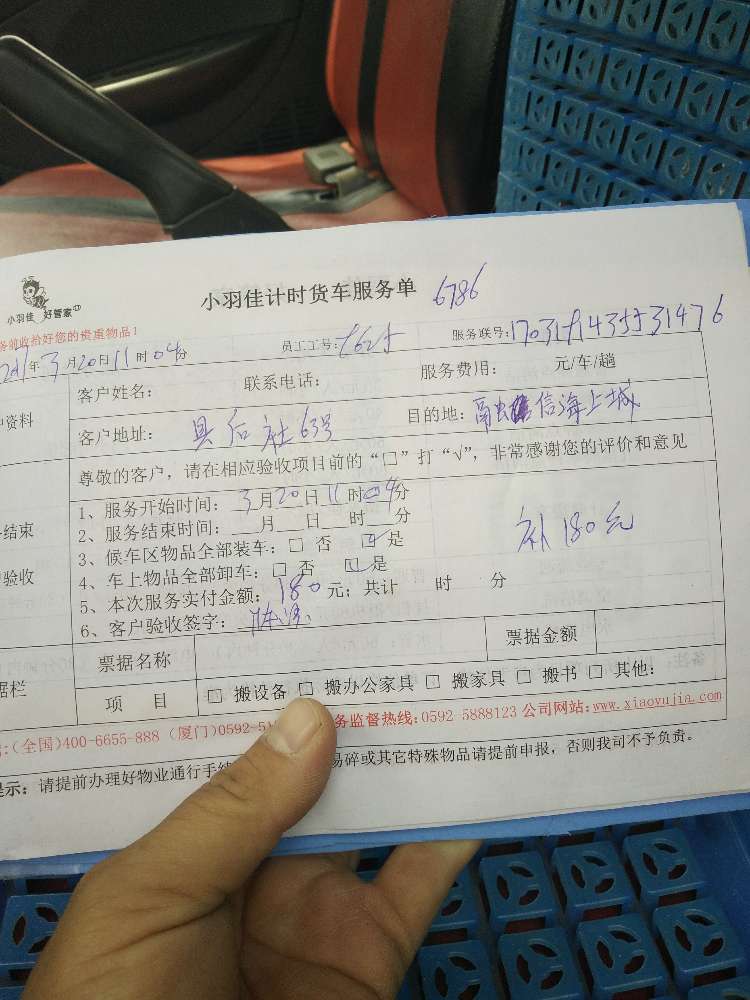 小羽佳 好管家
小羽佳计时货车服务单 6786
务前收拾好您的贵重物品！
年3月20日11时04分 员工工号： 服务联号：
客户资料
客户姓名： 联系电话： 服务费用： 元/车/趟
客户地址：县后社63号 目的地：信海上城
尊敬的客户，请在相应验收项目前的“□”打“√”，非常感谢您的评价和意见
1、服务开始时间：3月20日11时04分
2、服务结束时间：__月__日__时__分
3、候车区物品全部装车：□ 否 ☑ 是
4、车上物品全部卸车：□ 否 ☑ 是
5、本次服务实付金额：180元；共计 时 分
6、客户验收签字：
补180元
结束
验收
票据名称 票据金额
据栏
项 目 □ 搬设备 □ 搬办公家具 □ 搬家具 □ 搬书 □ 其他：
:(全国)400-6655-888 (厦门)0592-5 务监督热线:0592-5888123 公司网站:www.xiaoyujia.com
提示：请提前办理好物业通行手续 易碎或其它特殊物品请提前申报，否则我司不予负责。